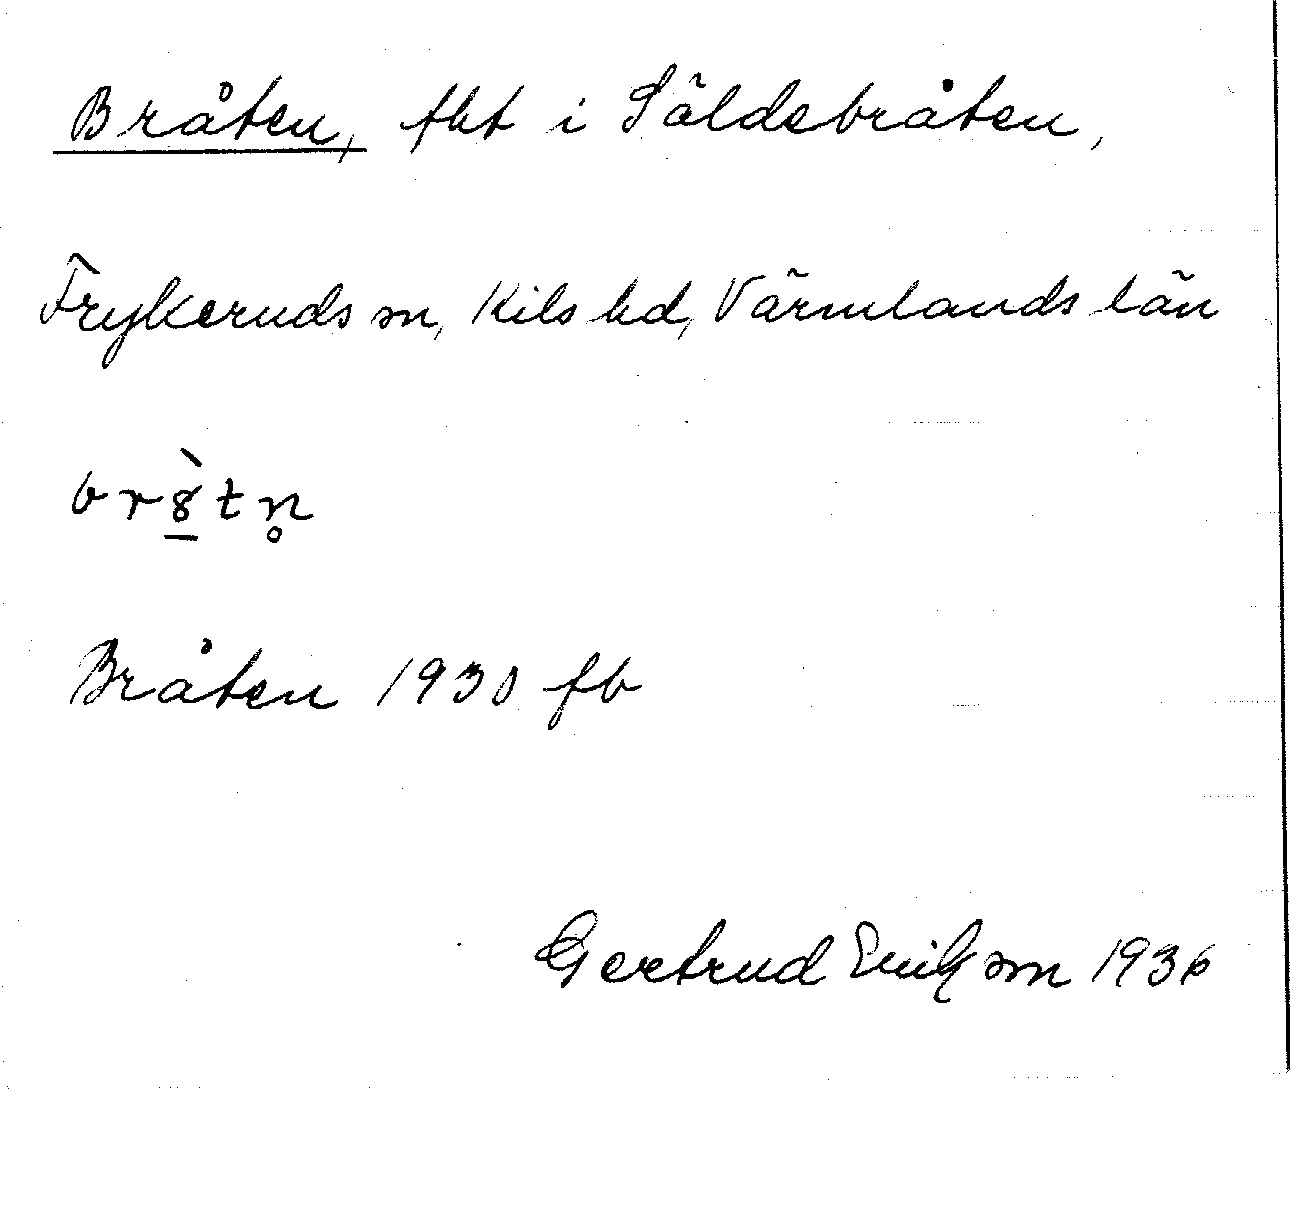 Bråten, fht i Säldebråten,
Frykeruds sn, Kils hd, Värmlands län
br8̱̀tn̥
Bråten 1930 fb
Gertrud Erikson 1936